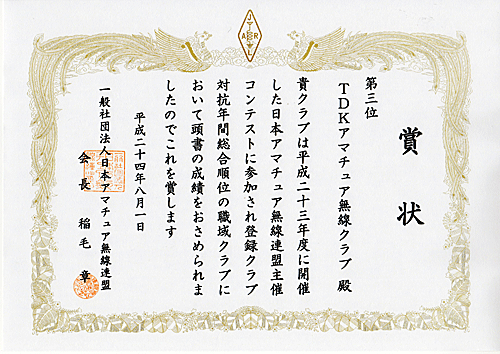 JARL
賞状
第三位
TDKアマチュア無線クラブ 殿
貴クラブは平成二十三年度に開催
した日本アマチュア無線連盟主催
コンテストに参加され登録クラブ
対抗年間総合順位の職域クラブに
おいて頭書の成績をおさめられま
したのでこれを賞します
平成二十四年八月一日
一般社団法人日本アマチュア無線連盟
会長 稲毛 章